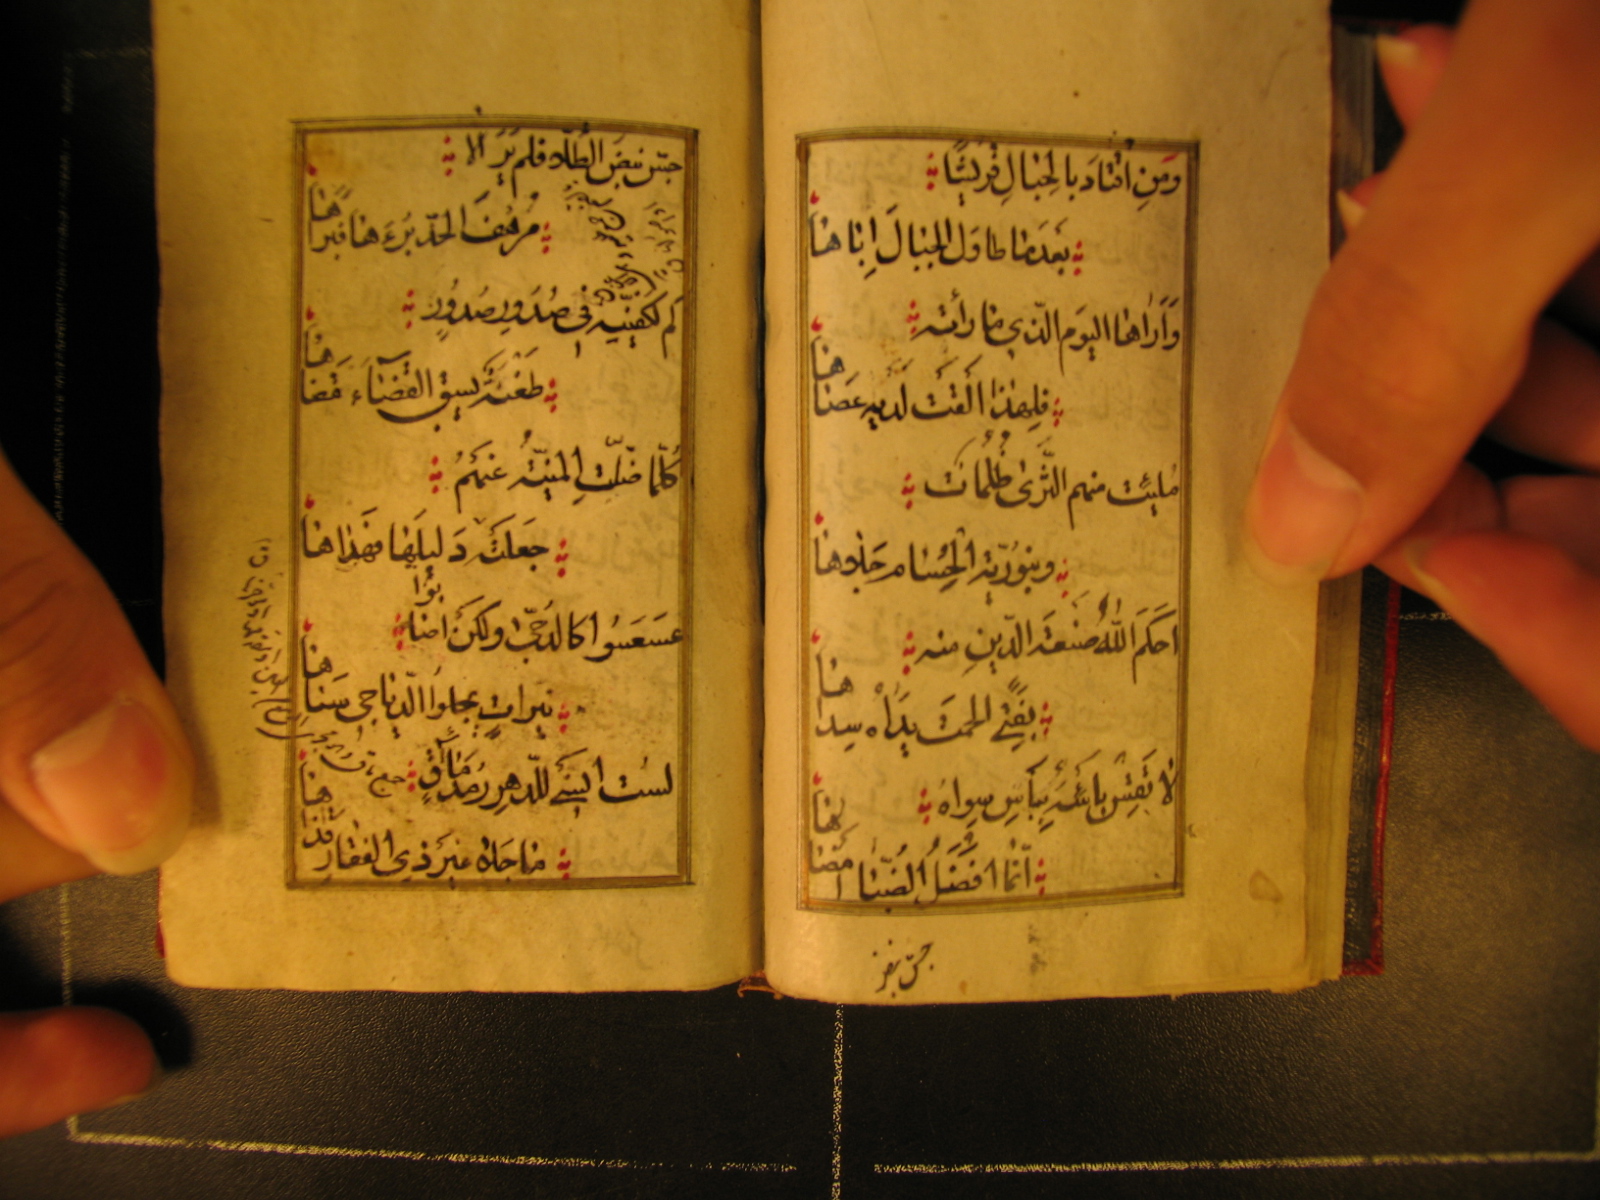 وَمَنِ اقْتَادَ بِالْجِبَالِ قُرَيْشًا
بَعْدَمَا طَاوَلَ الْجِبَالَ اِبَاهَا
وَاَرَاهَا اليَوْمَ الَّذِي مَا رَأَتْهُ
فَلِهٰذَا اَلْقَتْ لَدَيْهِ عَصَاهَا
مُلِئَتْ مِنْهُمُ الثَّرٰى ظُلُمَاتٌ
وَبِنُورِيَّةِ الْحُسَامِ جَلَاهَا
اَحْكَمَ اللّٰهُ صَنْعَةَ الدِّينِ مِنْهُ
بِفَتًى اَلْحَمَتْ يَدَاهُ سِدَاهَا
لَا تَقِسْ بَأْسَهُ بِبَأْسِ سِوَاهُ
اِنَّمَا اَفْضَلُ الضُّبَا اَمْضَاهَا
جسّ نبض
جَسَّ نَبْضَ الطُّلَا فَلَمْ يَرَ اِلَّا
مُرْهَفَ الْحَدِّ بُرْءَهَا فَبَرَاهَا
كَمْ لِكَفَّيْهِ فِي صُدُورِ صُدُورٍ
طَعْنَةٌ يَسْبِقُ الْقَضَاءَ قَضَاهَا
كُلَّمَا ضَلَّتِ الْمَنِيَّةُ عَنْهُمْ
جَعَلَتْهُ دَلِيلَهَا فَهَدَاهَا
عَسْعَسُوا كَالدُّجٰى وَلٰكِنْ اَصَابُوا
نَيِّرَاتٍ يَجْلُوا الدَّيَاجِي سَنَاهَا
لَسْتُ اَنْسٰى لِلدَّهْرِ رُمْدَ مَاٰقٍ
جمع ماق
مَا جَلَاهَا غَيْرُ ذِي الْفَقَارِ قَذَاهَا